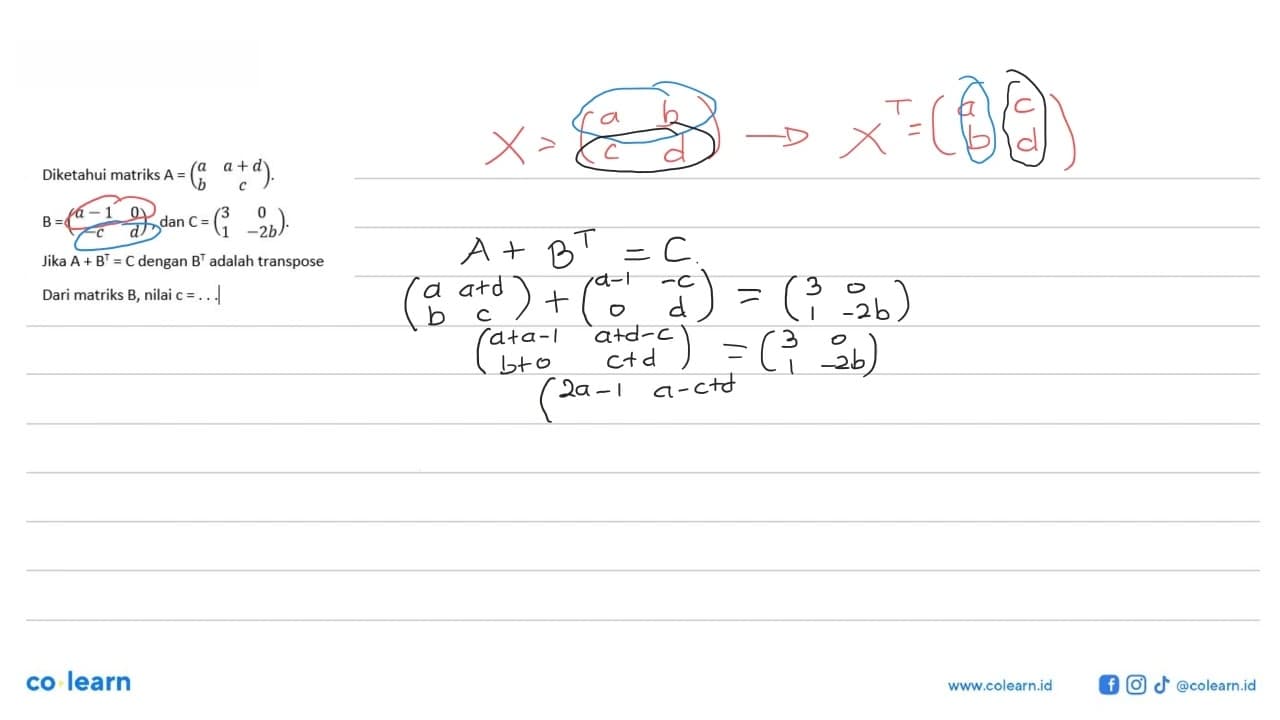 X = (a b
c d) → X^T = (a c
b d)
Diketahui matriks A = (a a + d
b c).
B = (a − 1 0
−c d), dan C = (3 0
1 −2b).
Jika A + B^T = C dengan B^T adalah transpose
Dari matriks B, nilai c = . . .|
A + B^T = C.
(a a+d
b c) + (a-1 -c
0 d) = (3 0
1 -2b)
(a+a-1 a+d-c
b+0 c+d) = (3 0
1 -2b)
(2a-1 a-c+d
co learn
www.colearn.id
@colearn.id